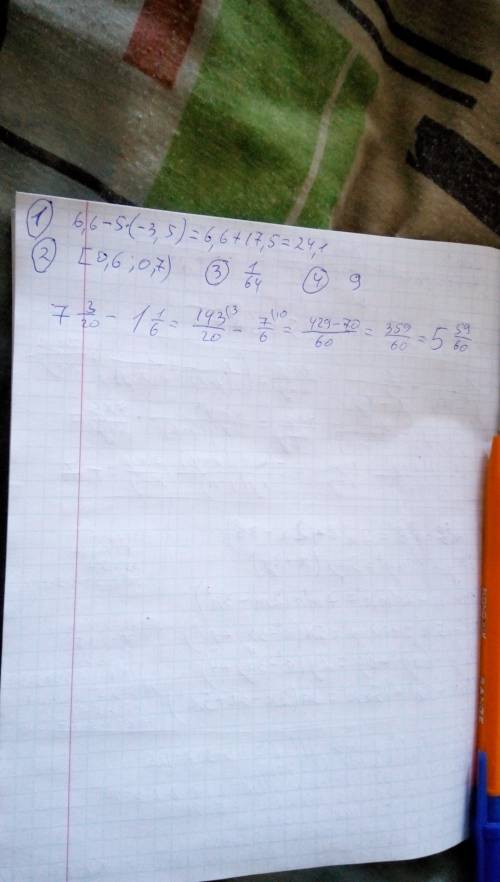 ① 6,6-5·(-3,5)=6,6+17,5=24,1
② [0,6;0,7) ③ 1/64 ④ 9
7 3/20 - 1 1/6 = 143/20 (3 - 7/6 (10 = 429-70/60 = 359/60 = 5 59/60